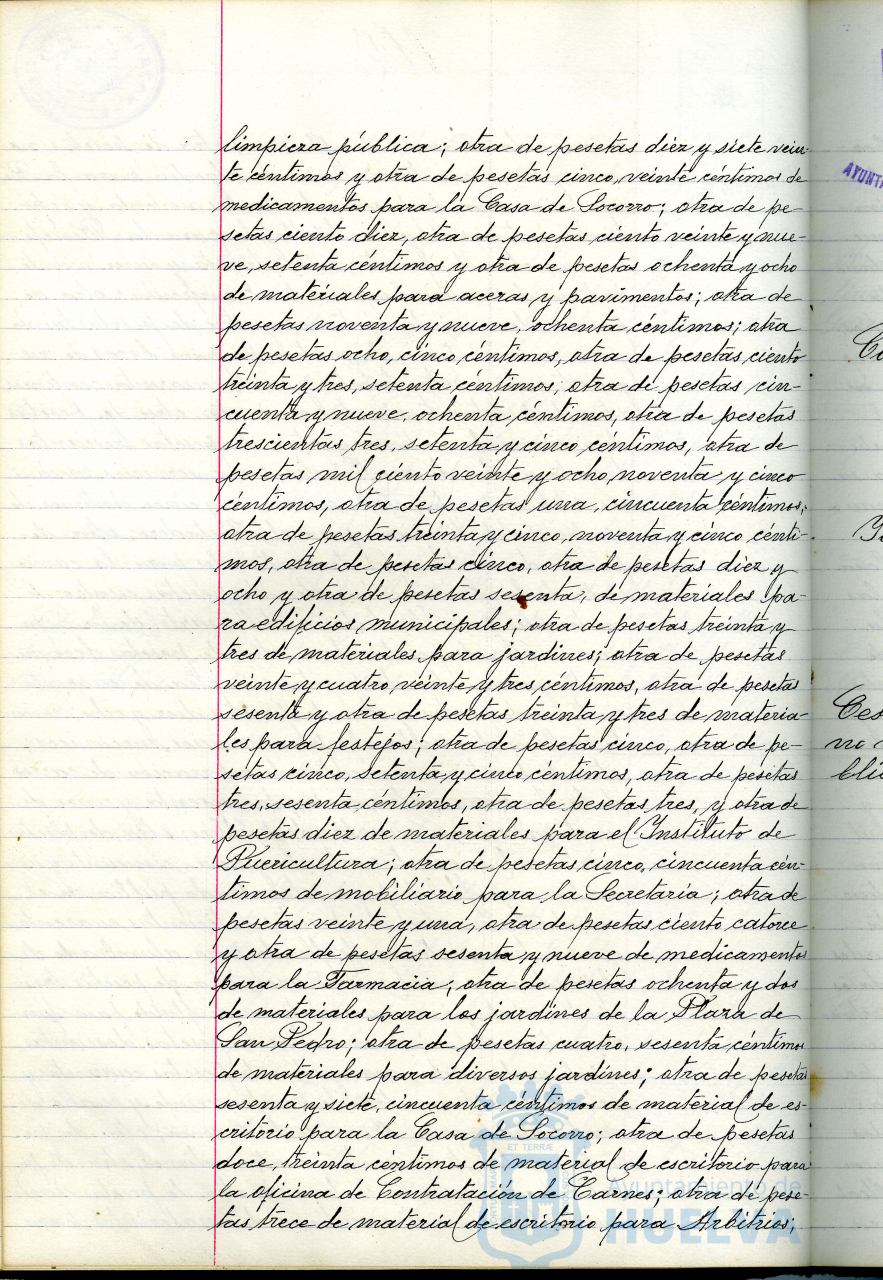 limpieza pública; otra de pesetas diez y siete vein-
te céntimos y otra de pesetas cinco, veinte céntimos de
medicamentos para la Casa de Socorro; otra de pe-
setas ciento diez, otra de pesetas ciento veinte y nue-
ve, setenta céntimos y otra de pesetas ochenta y ocho
de materiales para aceras y pavimentos; otra de
pesetas noventa y nueve, ochenta céntimos; otra
de pesetas ocho, cinco céntimos, otra de pesetas ciento
treinta y tres, setenta céntimos; otra de pesetas cin-
cuenta y nueve, ochenta céntimos, otra de pesetas
trescientas tres, setenta y cinco céntimos, otra de
pesetas mil ciento veinte y ocho, noventa y cinco
céntimos, otra de pesetas una, cincuenta céntimos,
otra de pesetas treinta y cinco, noventa y cinco cénti-
mos, otra de pesetas cinco, otra de pesetas diez y
ocho y otra de pesetas sesenta, de materiales pa-
ra edificios municipales; otra de pesetas treinta y
tres de materiales para jardines; otra de pesetas
veinte y cuatro, veinte y tres céntimos, otra de pesetas
sesenta y otra de pesetas treinta y tres de materia-
les para festejos; otra de pesetas cinco, otra de pe-
setas cinco, setenta y cinco céntimos, otra de pesetas
tres, sesenta céntimos, otra de pesetas tres, y otra de
pesetas diez de materiales para el Instituto de
Puericultura; otra de pesetas cinco, cincuenta cén-
timos de mobiliario para la Secretaría; otra de
pesetas veinte y una, otra de pesetas ciento catorce
y otra de pesetas sesenta y nueve de medicamentos
para la Farmacia; otra de pesetas ochenta y dos
de materiales para los jardines de la Plaza de
San Pedro; otra de pesetas cuatro, sesenta céntimos
de materiales para diversos jardines; otra de pesetas
sesenta y siete, cincuenta céntimos de material de es-
critorio para la Casa de Socorro; otra de pesetas
doce, treinta céntimos de material de escritorio para
la oficina de Contratación de Carnes; otra de pese-
tas trece de material de escritorio para Arbitrios;
ET TERRÆ
Ayuntamiento de
HUELVA
AYUNTA
Ces
no
blic